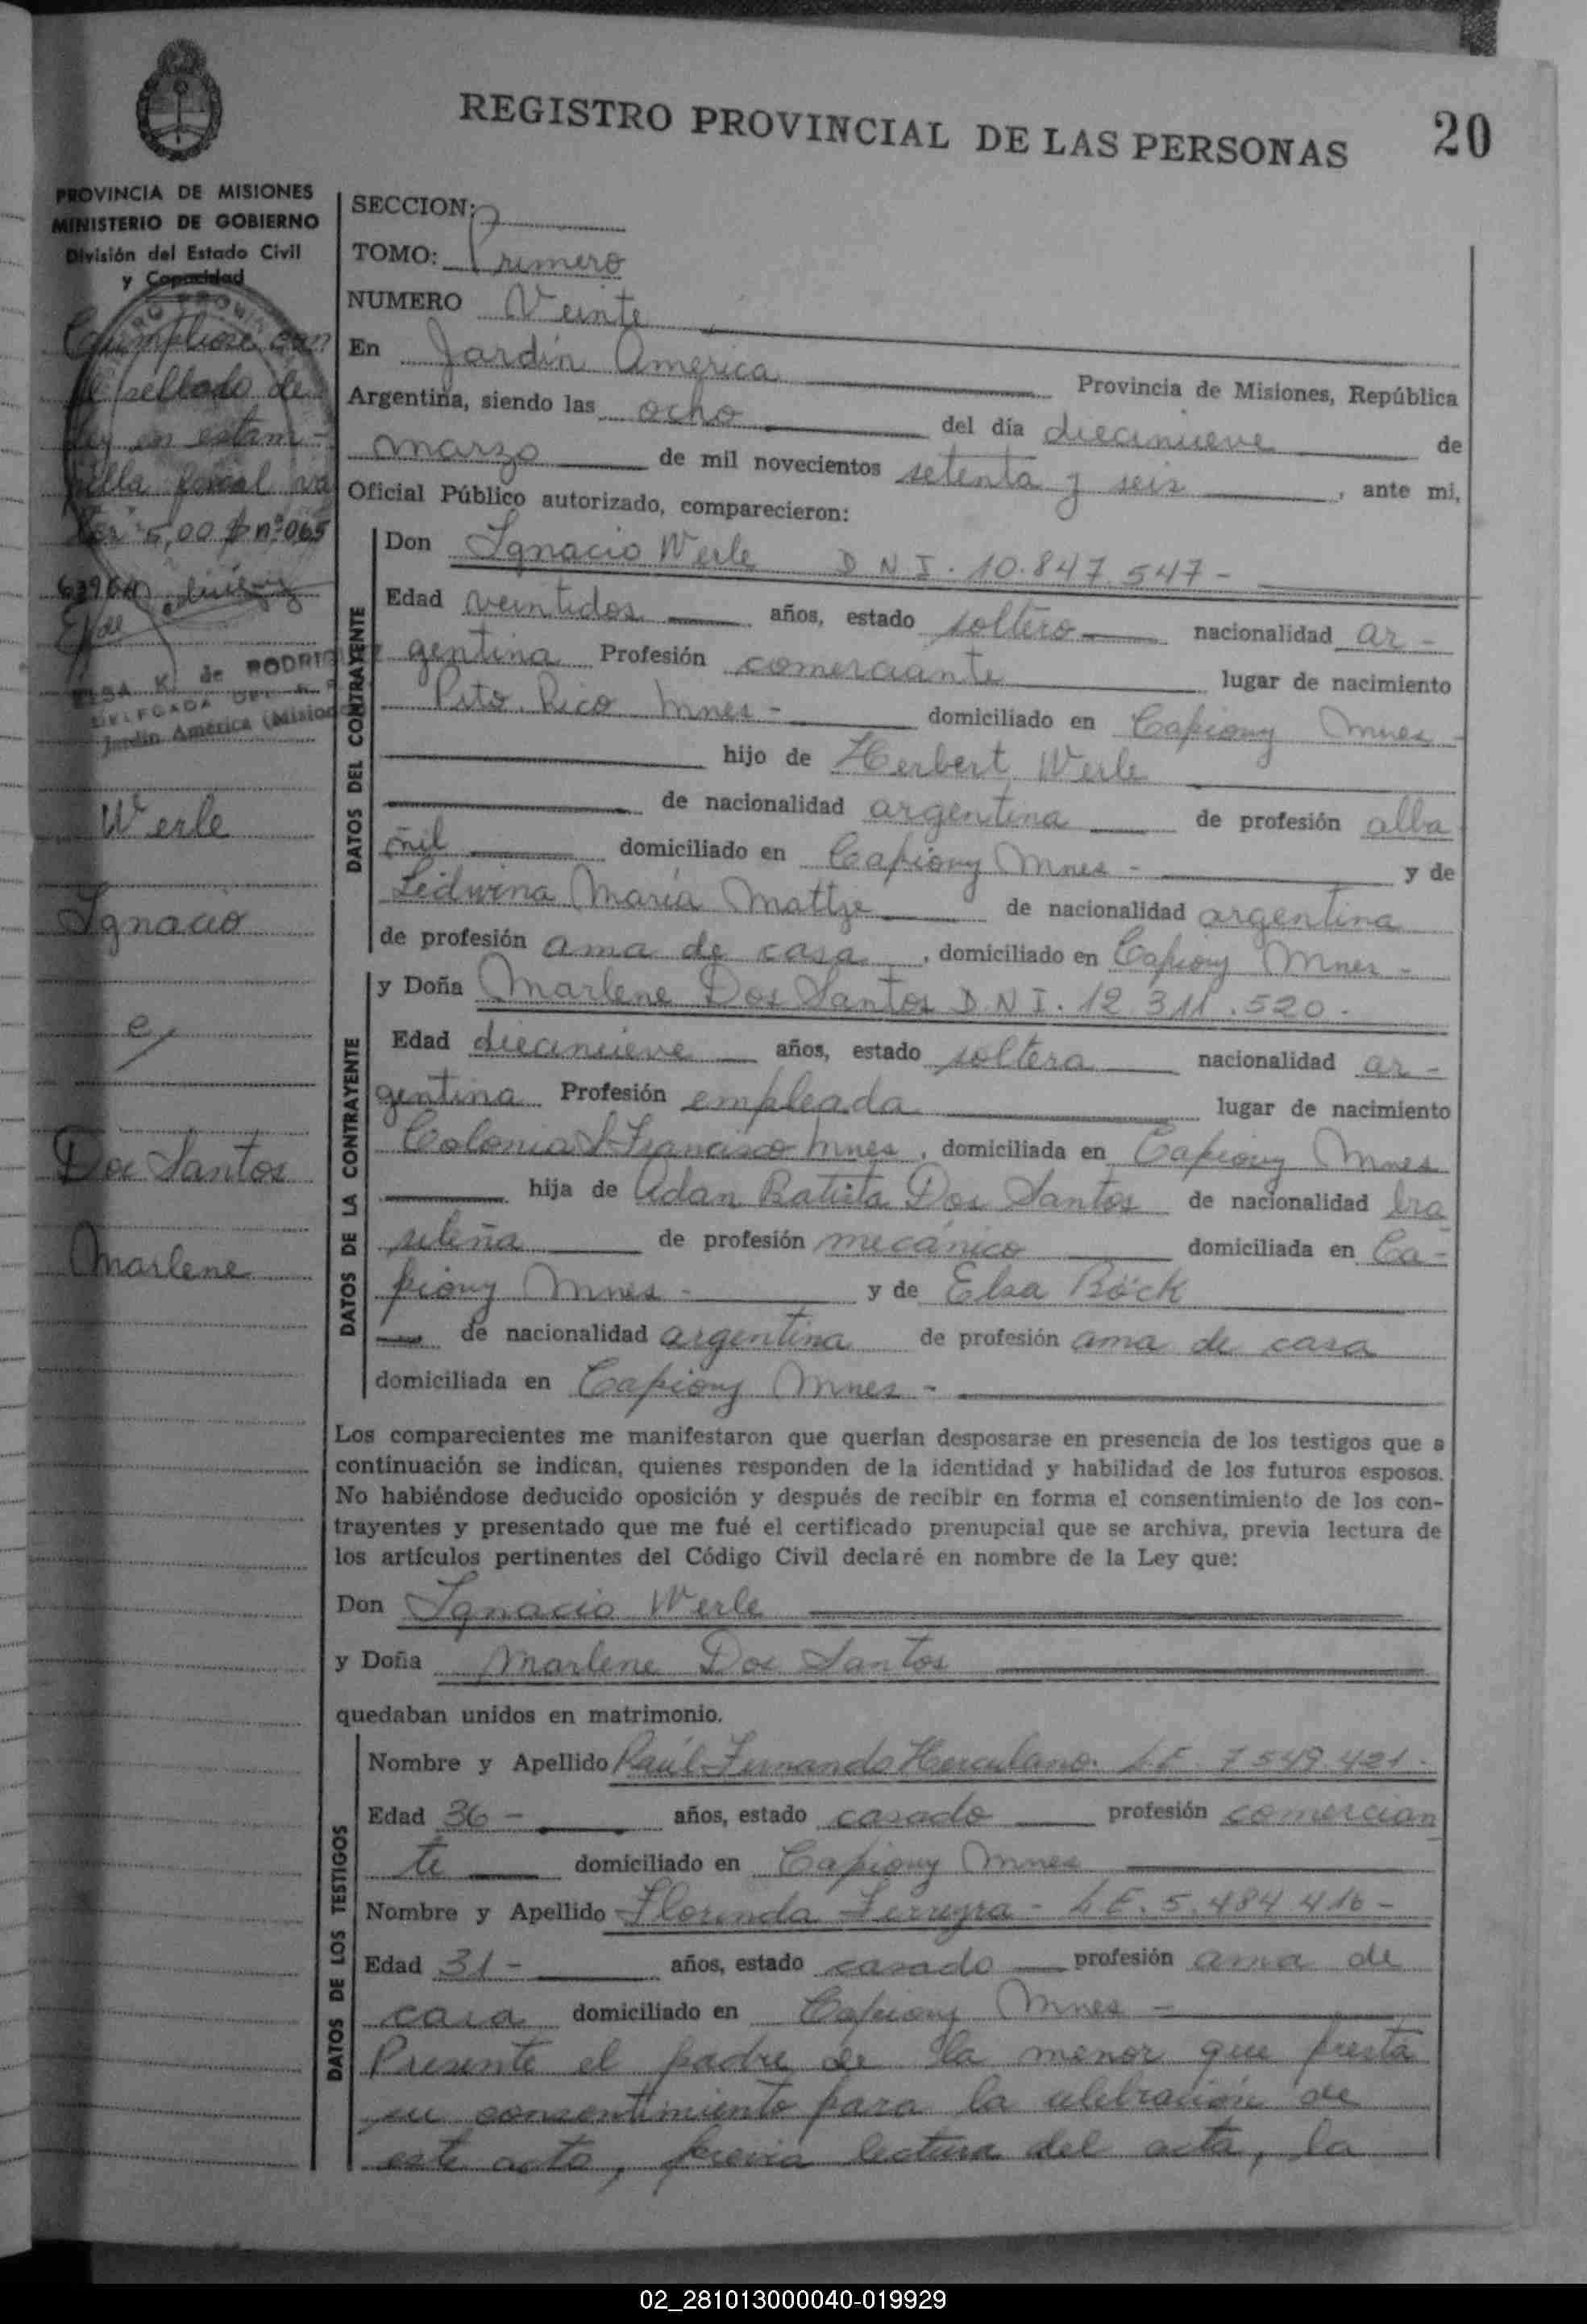 REGISTRO PROVINCIAL DE LAS PERSONAS 20
PROVINCIA DE MISIONES
MINISTERIO DE GOBIERNO
División del Estado Civil
y Capacidad
Cumpliose con
el sellado de
ley en estam-
pilla fiscal va
lor 5,00 $ nº 065
ELSA K. de RODRIG
DELEGADA
Jardín América (Mision
Werle
Ignacio
e/
Dos Santos
Marlene
SECCION:
TOMO: Primero
NUMERO Veinte
En Jardín América Provincia de Misiones, República
Argentina, siendo las ocho del día diecinueve de
marzo de mil novecientos setenta y seis, ante mi,
Oficial Público autorizado, comparecieron:
DATOS DEL CONTRAYENTE
Don Ignacio Werle D.N.I. 10.847.547-
Edad veintidos años, estado soltero nacionalidad ar-
gentina Profesión comerciante lugar de nacimiento
Pto. Rico Mnes- domiciliado en Capiovy Mnes-
hijo de Herbert Werle
de nacionalidad argentina de profesión alba
ñil domiciliado en Capiovy Mnes- y de
Ledwina María Mattje de nacionalidad argentina
de profesión ama de casa, domiciliado en Capiovy Mnes-
DATOS DE LA CONTRAYENTE
y Doña Marlene Dos Santos D.N.I. 12.311.520.-
Edad diecinueve años, estado soltera nacionalidad ar-
gentina Profesión empleada lugar de nacimiento
Colonia S. Francisco Mnes, domiciliada en Capiovy Mnes
hija de Adan Batista Dos Santos de nacionalidad bra
sileña de profesión mecánico domiciliada en Ca-
piovy Mnes- y de Elsa Böck
de nacionalidad argentina de profesión ama de casa
domiciliada en Capiovy Mnes-
Los comparecientes me manifestaron que querían desposarse en presencia de los testigos que a
continuación se indican, quienes responden de la identidad y habilidad de los futuros esposos.
No habiéndose deducido oposición y después de recibir en forma el consentimiento de los con-
trayentes y presentado que me fué el certificado prenupcial que se archiva, previa lectura de
los artículos pertinentes del Código Civil declaré en nombre de la Ley que:
Don Ignacio Werle
y Doña Marlene Dos Santos
quedaban unidos en matrimonio.
DATOS DE LOS TESTIGOS
Nombre y Apellido Raúl Fernando Herculano. L.E. 7549.421-
Edad 36- años, estado casado profesión comercian
te domiciliado en Capiovy Mnes
Nombre y Apellido Florinda Ferreyra- L.E. 5.484.416-
Edad 31- años, estado casado profesión ama de
casa domiciliado en Capiovy Mnes-
Presente el padre de la menor que presta
su consentimiento para la celebración de
este acto, previa lectura del acta, la
02_281013000040-019929